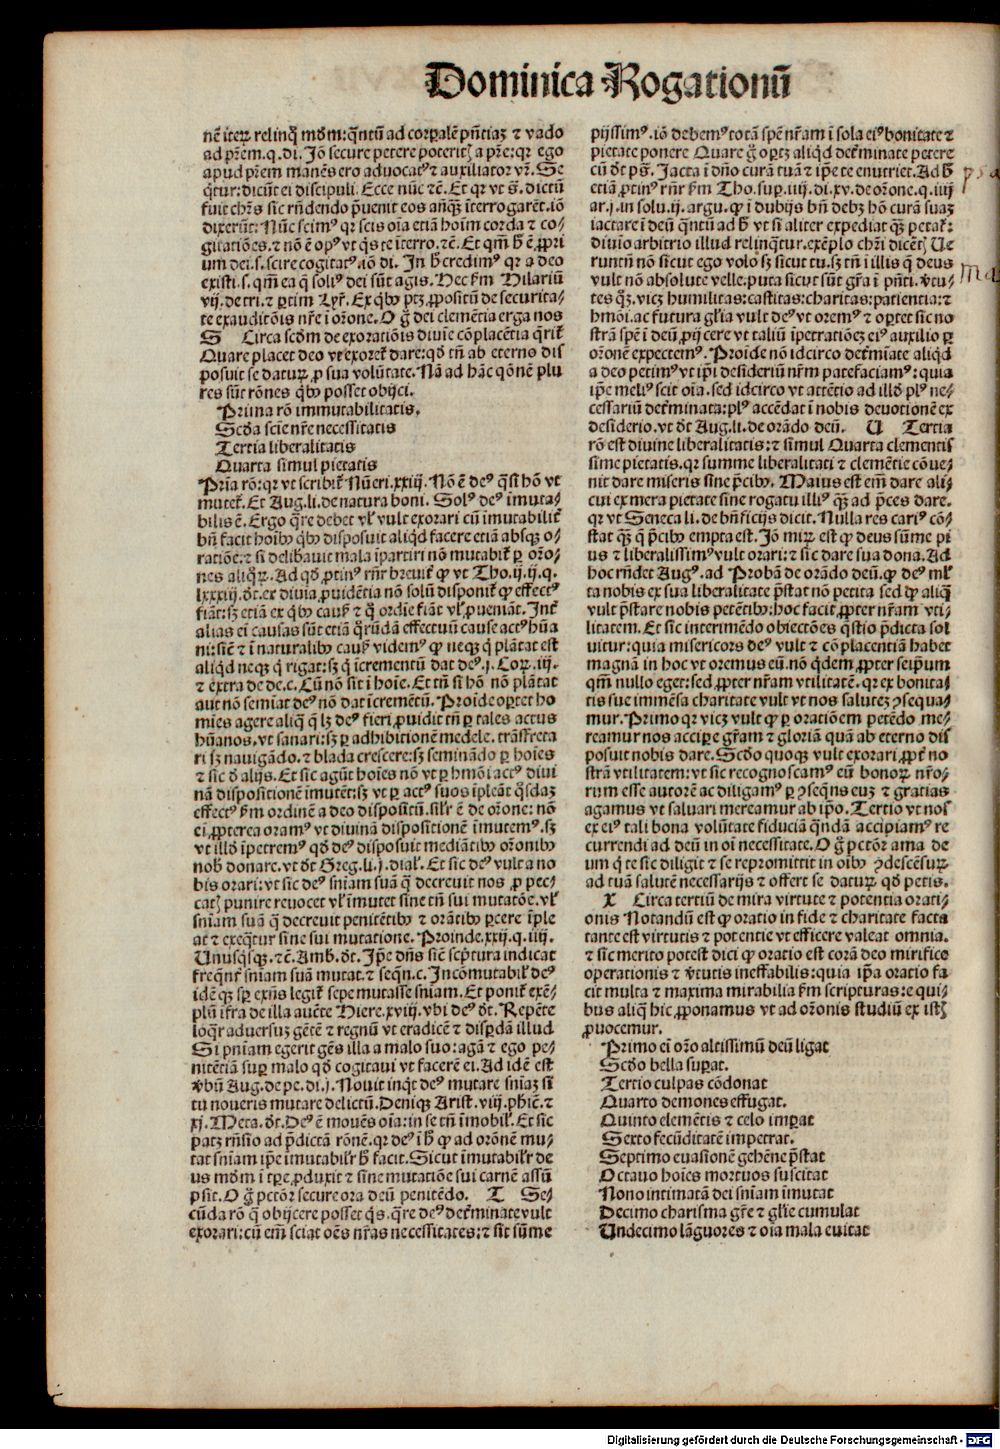 Dominica Rogationū
nē iteꝝ relinq̄ mōm:q̄ntū ad corꝑalē pn̄tiaꝫ ⁊ vado
ad pr̄em.q.di. Jō secure petere poteritꝭ a pr̄e:qꝛ ego
apud pr̄em manēs ero aduocatꝰ ⁊ auxiliatoꝛ vr̄. Se
q̄tur: dicūt ei discipuli. Ecce nūc ⁊c̄. Et qꝛ vt s̄. dictū
fuit chr̄s sic rn̄dendo p̄uenit eos anq̄ꝫ īterrogarēt.iō
dixerūt: Nūc scimꝰ qꝛ scis oīa etiā hoīm corda ⁊ co-
gitatiōes.⁊ nō ē opꝰ vt q̄s te īterro.⁊c̄. Et qm̄ h̄ ē ꝓpri
um dei.s.scire cogitatꝰ.iō di. In h̄ credimꝰ qꝛ a deo
existi.s.qm̄ ea q̄ soliꝰ dei sūt agis. Hec ẜm Hilariū
vij.de tri.⁊ ꝑtim Lyr̄. Ex qͥbꝰ ptꝫ ꝓpositū de securita-
te exauditōis nr̄e ī or̄one. O g̊ dei clementia erga nos
S Circa scd̄m de exoratiōis diuīe cōplacētia q̄rit̄
Quare placet deo vt exoret̄ dare:qd̄ tn̄ ab eterno dis
posuit se daturꝝ ꝓ sua volūtate. Nā ad hāc q̄onē plu
res sūt rōnes qͥbꝰ posset obijci.
Prima rō immutabilitatis.
Scd̄a sciē nr̄e necessitatis
Tertia liberalitatis
Quarta simul pietatis
Prīa rō:qꝛ vt scribit̄ Nūeri.xxiij. Nō ē deꝰ q̄si hō vt
mutet̄. Et Aug.li.de natura boni. Solꝰ deꝰ īmuta-
bilis ē. Ergo q̄re debet vl̄ vult exorari cū īmutabilit̄
hn̄ facit hoībꝰ qͥbꝰ disposuit aliqd̄ facere etiā absqꝫ o-
ratiōe.⁊ si delibauit mala īpartiri nō mutabit̄ ꝑ or̄o-
nes aliqͣꝝ. Ad qd̄ ꝑtinꝫ rn̄r breuit̄ ꝙ vt Tho.ij.ij.q.
lxxxiij.d̄t.ex diuia ꝓuidētia nō solū disponit̄ ꝙ effectꝰ
fiāt:sꝫ etiā ex qͥbꝰ causꝭ ⁊ q̊ ordīe fiāt vl̄ ꝓueniāt. Int̄
alias ei causas sūt etiā q̊rūdā effectuū cause actꝰ hūa
ni:sic̄ ⁊ ī naturalibꝰ causꝭ videmꝰ ꝙ neqꝫ q̄ plātat est
aliqd̄ neqꝫ q̄ rigat:sꝫ q̄ īcrementū dat deꝰ.j.Coꝝ.iij.
⁊ extra de de.c.Cū nō sit ī hoīe. Et tn̄ si hō nō plātat
aut nō semīat deꝰ nō dat īcremētū. Proīde oꝑtet ho
mīes agere aliq̄ q̄ lꝫ deꝰ fieri ꝓuidit tn̄ ꝑ tales actus
hūanos.vt sanari:sꝫ ꝑ adhibitionē medele. trāsfreta
ri sꝫ nauigādo.⁊ blada crescere:sꝫ seminādo ꝑ hoīes
⁊ sic d̄ alijs. Et sic agūt hoīes nō vt ꝑ hmōi actꝰ diui
nā dispositionē īmutēt:sꝫ vt ꝑ actꝰ suos īpleāt q̄sdaꝫ
effectꝰ ẜm ordinē a deo dispositū.sil̄r ē de or̄one: nō
ei ꝓpterea oramꝰ vt diuinā dispositionē īmutemꝰ.sꝫ
vt illd̄ īpetremꝰ qd̄ deꝰ disposuit mediātibꝰ or̄onibꝰ
nob̄ donare.vt d̄t Greg.li.j.dial̄. Et sic deꝰ vult a no
bis orari:vt sic deꝰ sn̄iam suā q̄ decreuit nos ꝓ pec-
catꝭ punire reuocet vl̄ īmutet sine tn̄ sui mutatōe.vl̄
sn̄iam suā q̄ decreuit penitētibꝰ ⁊ orātibꝰ ꝑcere īple
at ⁊ exeq̄tur sine sui mutatione. Proinde.xxij.q.iiij.
Unusq̄sqꝫ.⁊c̄. Amb.d̄t. Ip̄e dn̄s siē scpͥtura indicat
freqn̄t̄ sn̄iam suā mutat.⁊ seqn̄.c. Incōmutabil̄ deꝰ
idē qꝫ sꝑ exn̄s legit̄ sepe mutasse sn̄iam. Et ponit̄ exē-
plū ifra de illa auc̄te Hiere.xviij.vbi deꝰ d̄t. Repēte
loq̄r aduersuꝫ gētē ⁊ regnū vt eradicē ⁊ disꝑdā illud
Si pn̄iam egerit gēs illa a malo suo: agā ⁊ ego pe-
nitētiā suꝑ malo qd̄ cogitaui vt facerē ei. Ad idē est
v̄bū Aug.de pe.di.j. Nouit inqͥt deꝰ mutare sn̄iaꝫ si
tu noueris mutare delictū. Deniqꝫ Arist.viij.phic̄.⁊
xj. Meta.d̄t. Deꝰ ē mouēs oīa:in se tn̄ īmobil̄. Et sic
patꝫ rn̄sio ad p̄dictā rōnē.qꝛ deꝰ ī h̄ ꝙ ad orōnē mu-
tat sn̄iam ip̄e īmutabil̄r h̄ facit. Sicut īmutabil̄r de
us mōm ī tꝑe ꝓduxit ⁊ sine mutatiōe sui carnē assū
psit. O g̊ pctōr secure ora deū penitēdo. T Se-
cūda rō q̄ obijcere posset q̄s.q̄re deꝰ det̄minate vult
exorari:cū em̄ sciat oēs nr̄as necessitates:⁊ sit sūme
pijssimꝰ.iō debemꝰ totā spē nr̄am ī sola eiꝰ bonitate ⁊
pietate ponere Quare g̊ oꝑtꝫ aliqd̄ det̄minate petere
cū d̄t ps̄. Jacta ī dn̄o curā tuā ⁊ ip̄e te enutriet. Ad h̄
etiā ꝑtinꝫ rn̄r ẜm Tho.suꝑ.iiij.di.xv.de or̄one.q.iiij
ar.j.in solu.ij.argu.ꝙ ī dubijs bn̄ debꝫ hō curā suaꝫ
iactare ī deū q̄ntū ad h̄ vt si aliter expediat qꝫ petat̄:
diuīo arbitrio illud relinq̄tur.exēplo chr̄i dicētꝭ Ue
runtn̄ nō sicut ego volo sꝫ sicut tu.sꝫ tn̄ ī illis q̄ deus
vult nō absolute velle.puta sicut sūt gr̄a ī pn̄ti.v̄tu-
tes qꝫ.vicꝫ humilitas:castitas:charitas:patientia:⁊
hmōi.ac futura gl̄ia vult deꝰ vt oremꝰ ⁊ oꝑtet sic no
strā spē ī deū ꝓijcere vt taliū īpetratiōeꝫ eiꝰ auxilio ꝑ
or̄onē expectemꝰ. Proīde nō idcirco det̄mīate aliqd̄
a deo petimꝰ vt ip̄i desideriū nr̄m patefaciamꝰ:quia
ip̄e meliꝰ scit oīa.sed idcirco vt attētio ad illd̄ plꝰ ne-
cessariū det̄minata:plꝰ accēdat ī nobis deuotionē ex
desiderio.vt d̄t Aug.li.de orādo deū. U Tertia
rō est diuine liberalitatis:⁊ simul Quarta clementis
sime pietatis.qꝛ summe liberalitati ⁊ clemētie cōue-
nit dare miseris sine pͥcibꝰ. Maius est em̄ dare ali-
cui ex mera pietate sine rogatu illiꝰ qꝫ ad p̄ces dare.
qꝛ vt Seneca li.de bn̄ficijs dicit. Nulla res cariꝰ cō-
stat qꝫ q̄ pͥcibꝰ empta est. Jō miꝝ est ꝙ deus sūme pi
us ⁊ liberalissimꝰ vult orari:⁊ sic dare sua dona. Ad
hoc rn̄det Augꝰ.ad Probā de orādo deū.ꝙ deꝰ ml̄
ta nobis ex sua liberalitate p̄stat nō petita sed ꝙ aliq̄
vult p̄stare nobis petētibꝰ:hoc facit ꝓpter nr̄am vti-
litatem. Et sic interimēdo obiectōes q̄stio p̄dicta sol
uitur:quia misericors deꝰ vult ⁊ cōplacentiā habet
magnā in hoc vt oremus eū.nō q̄dem ꝓpter seip̄um
qm̄ nullo eget:sed ꝓpter nr̄am vtilitatē.qꝛ ex bonita-
tis sue immēsa charitate vult vt nos saluteꝫ ꝯsequa-
mur. Primo qꝛ vicꝫ vult ꝙ ꝑ oratiōem petēdo me-
reamur nos accipere gr̄am ⁊ gloriā quā ab eterno dis
posuit nobis dare. Scd̄o quoqꝫ vult exorari ꝓpt̄ no
strā vtilitatem:vt sic recognoscamꝰ eū bonoꝝ nr̄o-
rum esse autorē ac diligamꝰ ꝑ ꝯseqn̄s euꝫ ⁊ gratias
agamus vt saluari mereamur ab ip̄o. Tertio vt nos
ex eiꝰ tali bona volūtate fiduciā q̄ndā accipiamꝰ re
currendi ad deū in oī necessitate. O g̊ pctōr ama de
um q̄ te sic diligit ⁊ se repromittit in oībꝰ ꝯdescēsuꝝ
ad tuā salutē necessarijs ⁊ offert se daturꝝ qd̄ petis.
X Circa tertiū de mira virtute ⁊ potentia orati-
onis Notandū est ꝙ oratio in fide ⁊ charitate facta
tante est virtutis ⁊ potentie vt efficere valeat omnia.
⁊ sic merito potest dici ꝙ oratio est corā deo mirifice
operationis ⁊ v̄tutis ineffabilis:quia ip̄a oratio fa
cit multa ⁊ maxima mirabilia ẜm scripturas:e qui-
bus aliq̄ hic ꝓponamus vt ad or̄onis studiū ex istꝭ
ꝓuocemur.
Primo ei or̄o altissimū deū ligat
Scd̄o bella suꝑat.
Tertio culpas cōdonat
Quarto demones effugat.
Quinto elemētis ⁊ celo imꝑat
Sexto fecūditatē impetrat.
Septimo euasionē gehēne p̄stat
Octauo hoīes mortuos suscitat
Nono intimatā dei sn̄iam īmutat
Decimo charisma gr̄e ⁊ gl̄ie cumulat
Undecimo lāguores ⁊ oīa mala euitat
Digitalisierung gefördert durch die Deutsche Forschungsgemeinschaft - DFG